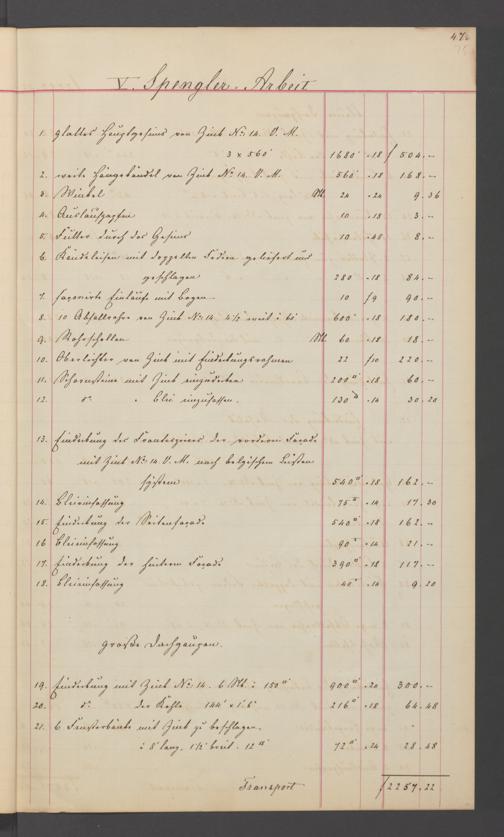 47.
V. Spengler-Arbeit
1. glattes Hauptgesims von Zink No. 14. V. M.
3 x 560' 1680' " 18 f 504. --
2. weite Hängekändel von Zink No. 14. V. M. 560' " 18 168. --
3. Winkel Stk. 24 " 24 9. 36
4. Auslaufzapfen 10 " 18 3. --
5. Futter durch das Gesims 10 " 48 8. --
6. Kändeleisen mit doppelten Federn geliefert und
geschlagen 280 " 18 84. --
7. façonirte Einläufe mit Bogen 10 f 9 90. --
8. 10 Abfallrohre von Zink No. 14. 4 1/2" weit à 60' 600' " 18 180. --
9. Rohrschellen Stk. 60 " 18 18. --
10. Oberlichter von Zink mit Eindeckungsrahmen 22 f 10 220. --
11. Schornsteine mit Zink einzudecken 200 " 18 60. --
12. do. " Blei einzufassen. 130 " 14 30. 20
13. Eindeckung des der vordern Façade
mit Zink No. 14 V. M. nach belgischem Leisten
system 540 " 18 162. --
14. Bleieinfassung 75 " 14 17. 30
15. Eindeckung der Seitenfaçade 540 " 18 162. --
16 Bleieinfassung 90 " 14 21. --
17. Eindeckung der hintern Façade 390 " 18 117. --
18. Bleieinfassung 40 " 14 9. 20
große Dachgaupen.
19. Eindeckung mit Zink No. 14. 6 Stk. à 150 900 " 20 300. --
20. do. der Kehle 144' x 1' 6" 216 " 18 64. 48
21. 6 Fensterbänke mit Zink zu beschlagen.
à 8' lang, 1 1/2' breit = 12 72 " 24 28. 48
Transport f 2257. 22